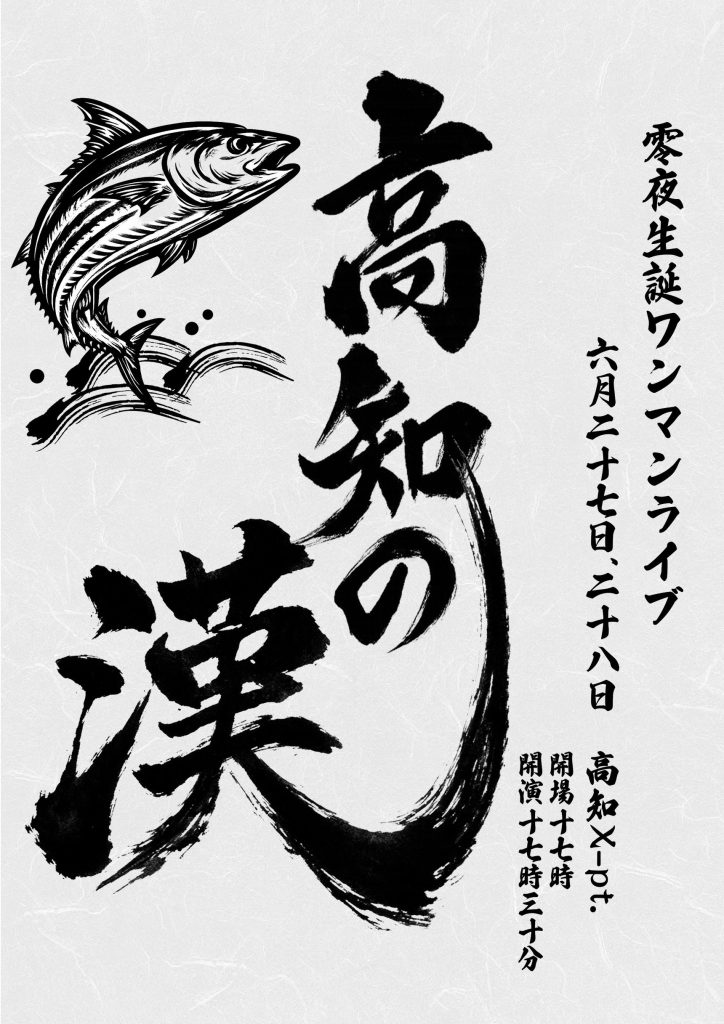 零夜生誕ワンマンライブ
六月二十七日、二十八日
高知X-pt.
開場十七時
開演十七時三十分
高知の
漢